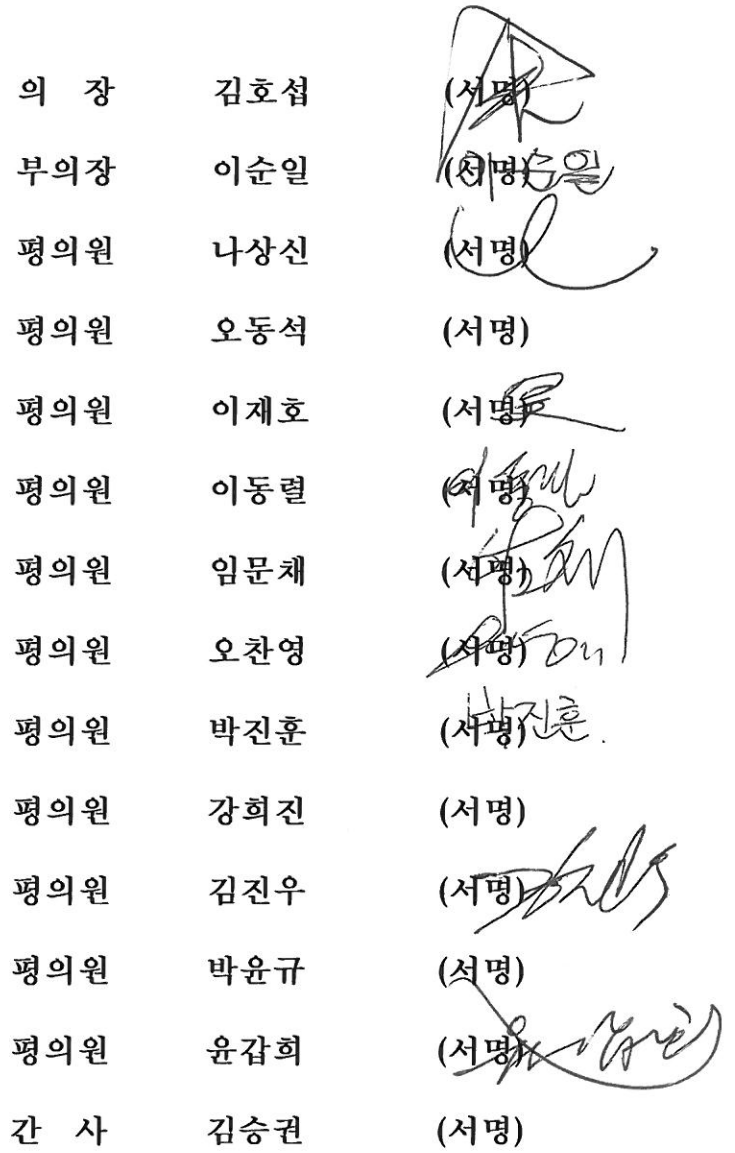 의 장 김호섭 (서명)
부의장 이순일 (서명) 이순일
평의원 나상신 (서명)
평의원 오동석 (서명)
평의원 이재호 (서명)
평의원 이동렬 (서명)
평의원 임문채 (서명)
평의원 오찬영 (서명)
평의원 박진훈 (서명) 박진훈
평의원 강희진 (서명)
평의원 김진우 (서명)
평의원 박윤규 (서명)
평의원 윤갑희 (서명)
간 사 김승권 (서명)